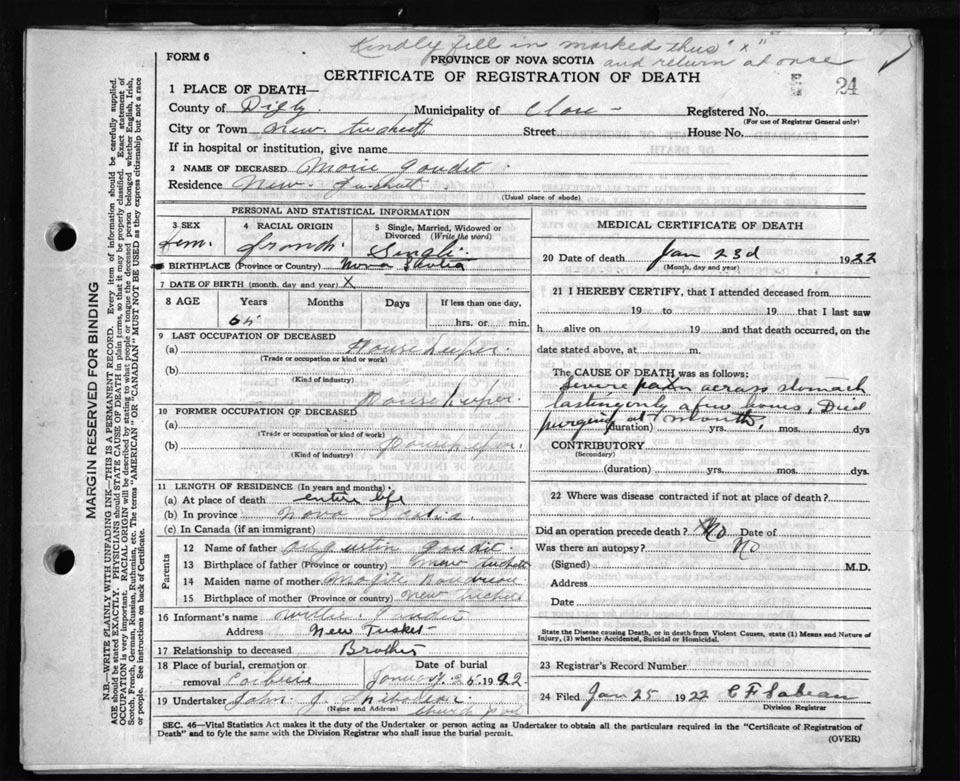 Kindly fill in marked thus "x"
and return at once
FORM 6
PROVINCE OF NOVA SCOTIA
24
CERTIFICATE OF REGISTRATION OF DEATH
1 PLACE OF DEATH—
County of Digby Municipality of Clare - Registered No.
(For use of Registrar General only)
City or Town New Street House No.
If in hospital or institution, give name
2 NAME OF DECEASED Goudit
Residence New
(Usual place of abode)
PERSONAL AND STATISTICAL INFORMATION
3 SEX
Fem.
4 RACIAL ORIGIN
French.
5 Single, Married, Widowed or Divorced (Write the word)
Single
BIRTHPLACE (Province or Country) Nova Scotia
7 DATE OF BIRTH (month, day and year) X
8 AGE Years Months Days If less than one day,
65 hrs. or min.
9 LAST OCCUPATION OF DECEASED
(a) House keeper.
(Trade or occupation or kind or work)
(b)
(Kind of industry)
House keeper.
10 FORMER OCCUPATION OF DECEASED
(a)
(Trade or occupation or kind of work)
(b)
(Kind of industry)
11 LENGTH OF RESIDENCE (In years and months)
(a) At place of death entire life
(b) In province Nova Scotia.
(c) In Canada (if an immigrant)
Parents
12 Name of father Augustin Goudit.
13 Birthplace of father (Province or country)
14 Maiden name of mother
15 Birthplace of mother (Province or country) New
16 Informant's name Willie
Address New Tusket
17 Relationship to deceased Brother
18 Place of burial, cremation or removal
Date of burial
25 1922
19 Undertaker John J.
(Name and Address)
MEDICAL CERTIFICATE OF DEATH
20 Date of death Jan 23d 1922
(Month, day and year)
21 I HEREBY CERTIFY, that I attended deceased from
19 to 19 that I last saw
h alive on 19 and that death occurred, on the
date stated above, at m.
The CAUSE OF DEATH was as follows:
Severe pain across stomach
lasting only a few hours, Died
purging at mouth.
(duration) yrs. mos. dys
CONTRIBUTORY
(Secondary)
(duration) yrs. mos. dys.
22 Where was disease contracted if not at place of death?
Did an operation precede death? No Date of
Was there an autopsy? No
(Signed) M.D.
Address
Date
State the Disease causing Death, or in death from Violent Causes, state (1) Means and Nature of
Injury, (2) whether Accidental, Suicidal or Homicidal.
23 Registrar's Record Number
24 Filed Jan 25 1922 C F Sabean
Division Registrar
SEC. 46—Vital Statistics Act makes it the duty of the Undertaker or person acting as Undertaker to obtain all the particulars required in the "Certificate of Registration of
Death" and to fyle the same with the Division Registrar who shall issue the burial permit.
(OVER)
MARGIN RESERVED FOR BINDING
N.B.—WRITE PLAINLY WITH UNFADING INK—THIS IS A PERMANENT RECORD. Every item of information should be carefully supplied.
AGE should be stated EXACTLY. PHYSICIANS should STATE CAUSE OF DEATH in plain terms, so that it may be properly classified. Exact statement of
OCCUPATION is very important. RACIAL ORIGIN will be described by stating to what people or tongue the deceased person belonged whether English, Irish,
Scotch, French, German, Russian, Ruthenian, etc. The terms "AMERICAN" OR "CANADIAN" MUST NOT BE USED as they express citizenship but not a race
or people. See instructions on back of Certificate.